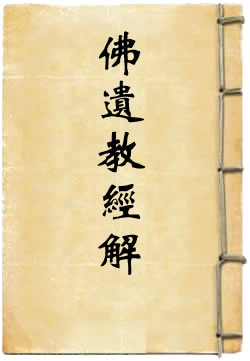 佛遺教經解